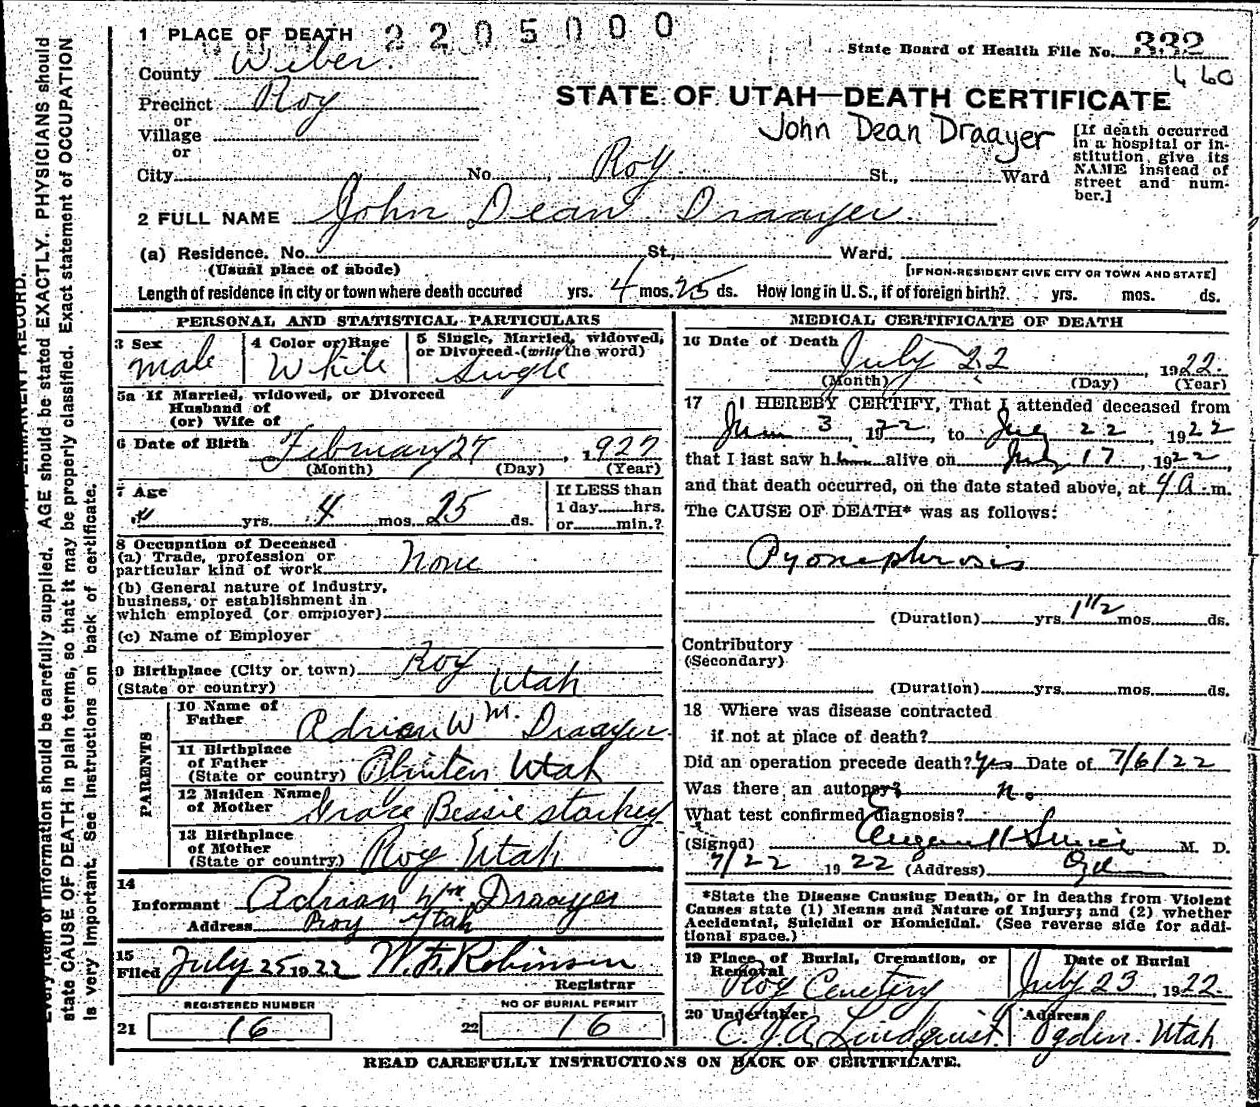 2205000
1 PLACE OF DEATH
State Board of Health File No. 332
County Weber.
460
Precinct Roy
STATE OF UTAH—DEATH CERTIFICATE
or
Village
John Dean Draayer
[If death occurred in a hospital or institution, give its NAME instead of street and number.]
or
City No. , Roy St., Ward
2 FULL NAME John Dean Draayer.
(a) Residence. No. St., Ward.
(Usual place of abode)
[IF NON-RESIDENT GIVE CITY OR TOWN AND STATE]
Length of residence in city or town where death occured yrs. 4 mos. 25 ds. How long in U. S., if of foreign birth? yrs. mos. ds.
PERSONAL AND STATISTICAL PARTICULARS
3 Sex
male
4 Color or Race
White
5 Single, Married, widowed, or Divorced (write the word)
Single
5a If Married, widowed, or Divorced
Husband of
(or) Wife of
6 Date of Birth February 27, 1922
(Month) (Day) (Year)
7 Age
yrs. 4 mos. 25 ds.
If LESS than
1 day hrs.
or min.?
8 Occupation of Deceased
(a) Trade, profession or
particular kind of work None
(b) General nature of industry,
business, or establishment in
which employed (or employer)
(c) Name of Employer
9 Birthplace (City or town) Roy
(State or country) Utah
PARENTS
10 Name of
Father Adrian Wm. Draayer
11 Birthplace
of Father
(State or country) Clinton Utah
12 Maiden Name
of Mother Grace Bessie Starkey
13 Birthplace
of Mother
(State or country) Roy Utah
14
Informant Adrian Wm Draayer
Address Roy Utah
15
Filed July 25 1922 W. F. Robinson
Registrar
REGISTERED NUMBER
21 16
NO OF BURIAL PERMIT
22 16
MEDICAL CERTIFICATE OF DEATH
16 Date of Death
July 22, 1922.
(Month) (Day) (Year)
17 I HEREBY CERTIFY, That I attended deceased from
June 3, 1922, to July 22, 1922
that I last saw him alive on July 17, 1922,
and that death occurred, on the date stated above, at 4 a. m.
The CAUSE OF DEATH* was as follows:
Pyonephrosis
(Duration) yrs. 1 1/2 mos. ds.
Contributory
(Secondary)
(Duration) yrs. mos. ds.
18 Where was disease contracted
if not at place of death?
Did an operation precede death? yes Date of 7/6/22
Was there an autopsy? no
What test confirmed diagnosis?
(Signed) M. D.
7/22 1922 (Address)
*State the Disease Causing Death, or in deaths from Violent
Causes state (1) Means and Nature of Injury; and (2) whether
Accidental, Suicidal or Homicidal. (See reverse side for addi-
tional space.)
19 Place of Burial, Cremation, or
Removal
Roy Cemetery
Date of Burial
July 23, 1922.
20 Undertaker
C. J. A. Lindquist.
Address
Ogden. Utah
READ CAREFULLY INSTRUCTIONS ON BACK OF CERTIFICATE.
PERMANENT RECORD.
Every item of information should be carefully supplied. AGE should be stated EXACTLY. PHYSICIANS should
state CAUSE OF DEATH in plain terms, so that it may be properly classified. Exact statement of OCCUPATION
is very important. See instructions on back of certificate.